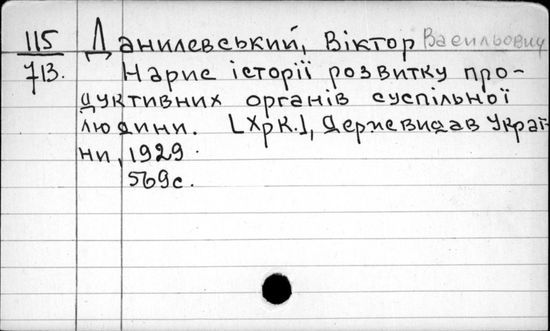 115 Данилевський, Віктор Васильович
713. Нарис історії розвитку про-
дуктивних органів суспільної
людини. [Хрк.], Держвидав Украї-
ни, 1929.
569с.